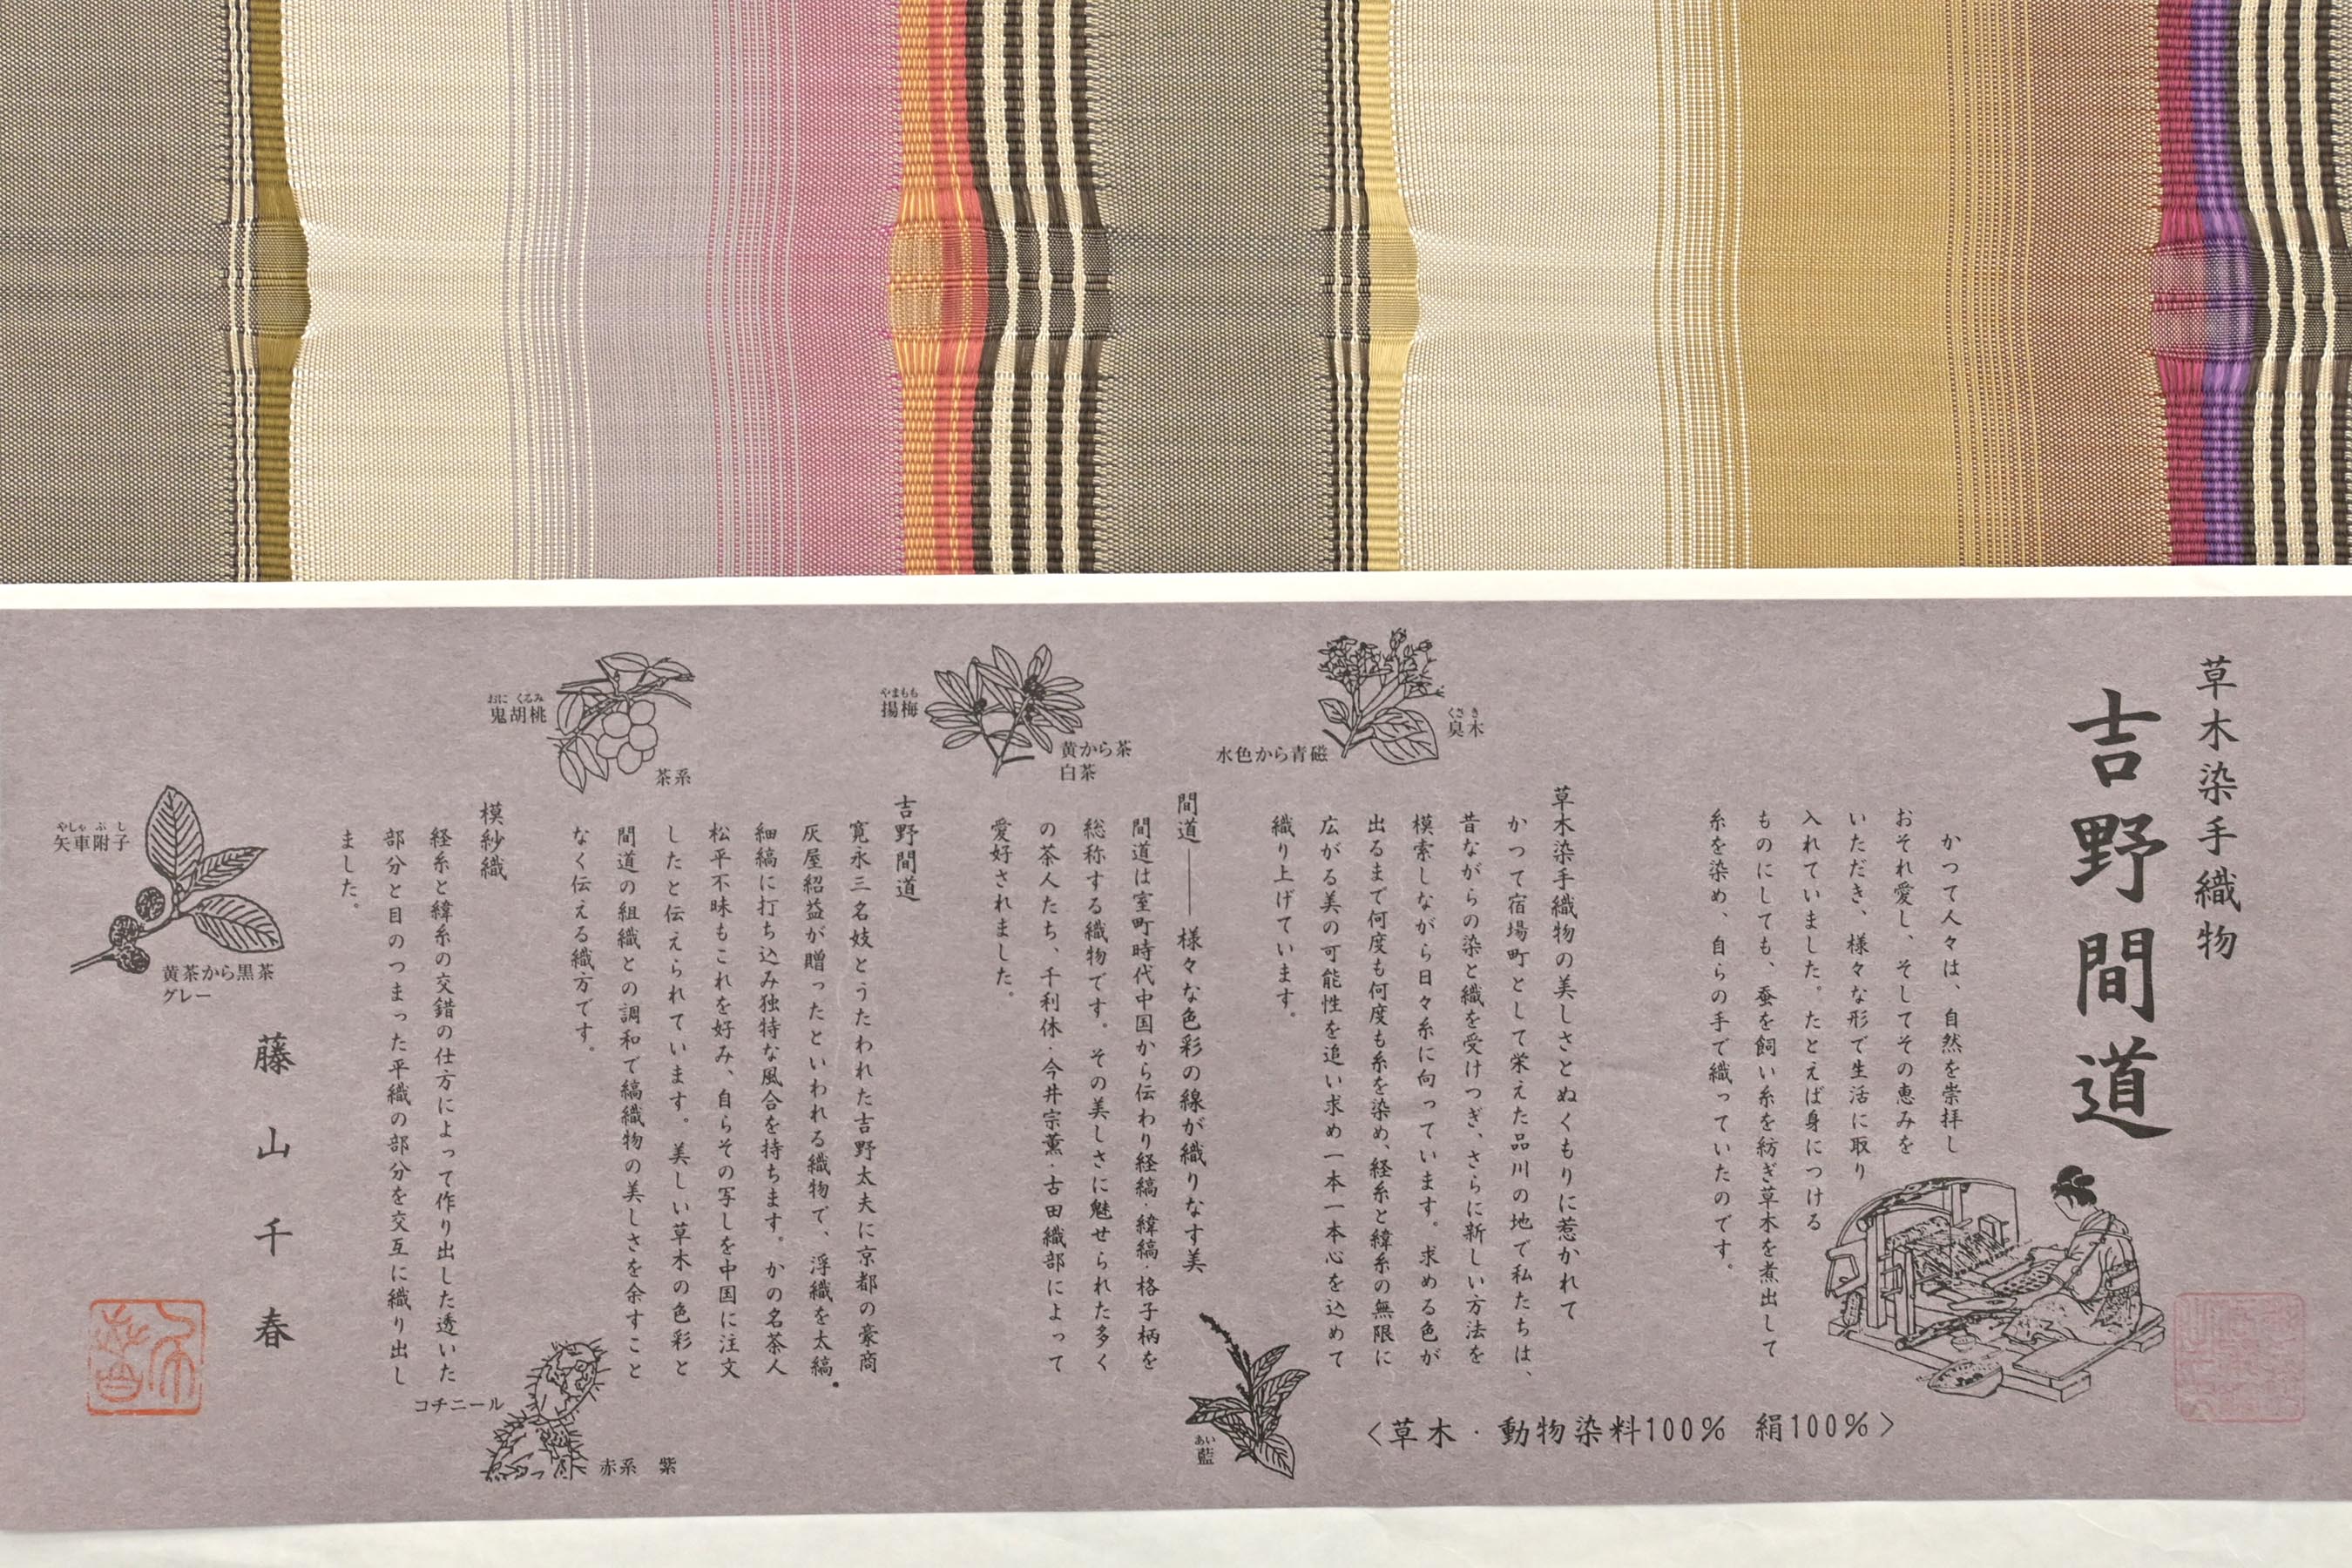 草木染手織物
吉野間道
かつて人々は、自然を崇拝し
おそれ愛し、そしてその恵みを
いただき、様々な形で生活に取り
入れていました。たとえば身につける
ものにしても、蚕を飼い糸を紡ぎ草木を煮出して
糸を染め、自らの手で織っていたのです。
草木染手織物の美しさとぬくもりに惹かれて
かつて宿場町として栄えた品川の地で私たちは、
昔ながらの染と織を受けつぎ、さらに新しい方法を
模索しながら日々糸に向っています。求める色が
出るまで何度も何度も糸を染め、経糸と緯糸の無限に
広がる美の可能性を追い求め一本一本心を込めて
織り上げています。
<草木・動物染料100% 絹100%>
臭木
くさき
水色から青磁
藍
あい
間道――様々な色彩の線が織りなす美
間道は室町時代中国から伝わり経縞・緯縞・格子柄を
総称する織物です。その美しさに魅せられた多く
の茶人たち、千利休・今井宗薫・古田織部によって
愛好されました。
揚梅
やまもも
黄から茶
白茶
吉野間道
寛永三名妓とうたわれた吉野太夫に京都の豪商
灰屋紹益が贈ったといわれる織物で、浮織を太縞
細縞に打ち込み独特な風合を持ちます。かの名茶人
松平不昧もこれを好み、自らその写しを中国に注文
したと伝えられています。美しい草木の色彩と
間道の組織との調和で縞織物の美しさを余すこと
なく伝える織方です。
鬼胡桃
おにくるみ
茶系
コチニール
赤系 紫
模紗織
経糸と緯糸の交錯の仕方によって作り出した透いた
部分と目のつまった平織の部分を交互に織り出し
ました。
矢車附子
やしゃぶし
黄茶から黒茶
グレー
藤山千春